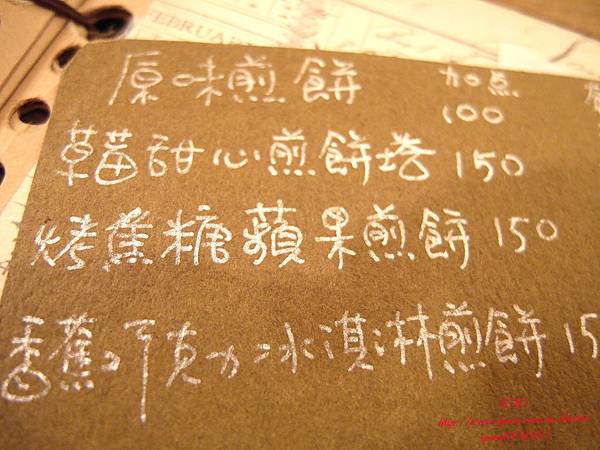 FEBRUAR
原味煎餅 加点
100
草莓甜心煎餅塔 150
烤焦糖蘋果煎餅 150
香蕉巧克力冰淇淋煎餅 15